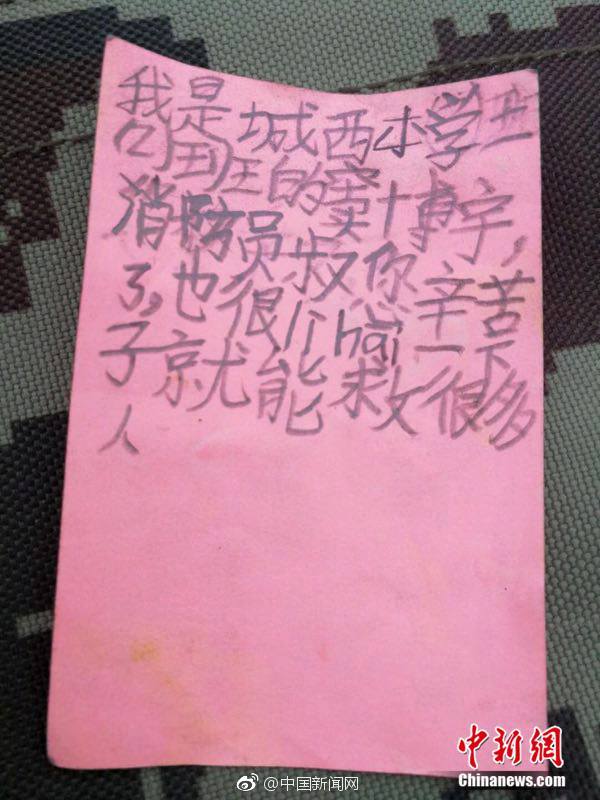 我是城西小学
班的窦博宇，
消防员叔你辛苦
了，也很li hai一下
子就能救很多
人
@中国新闻网
中新網
Chinanews.com